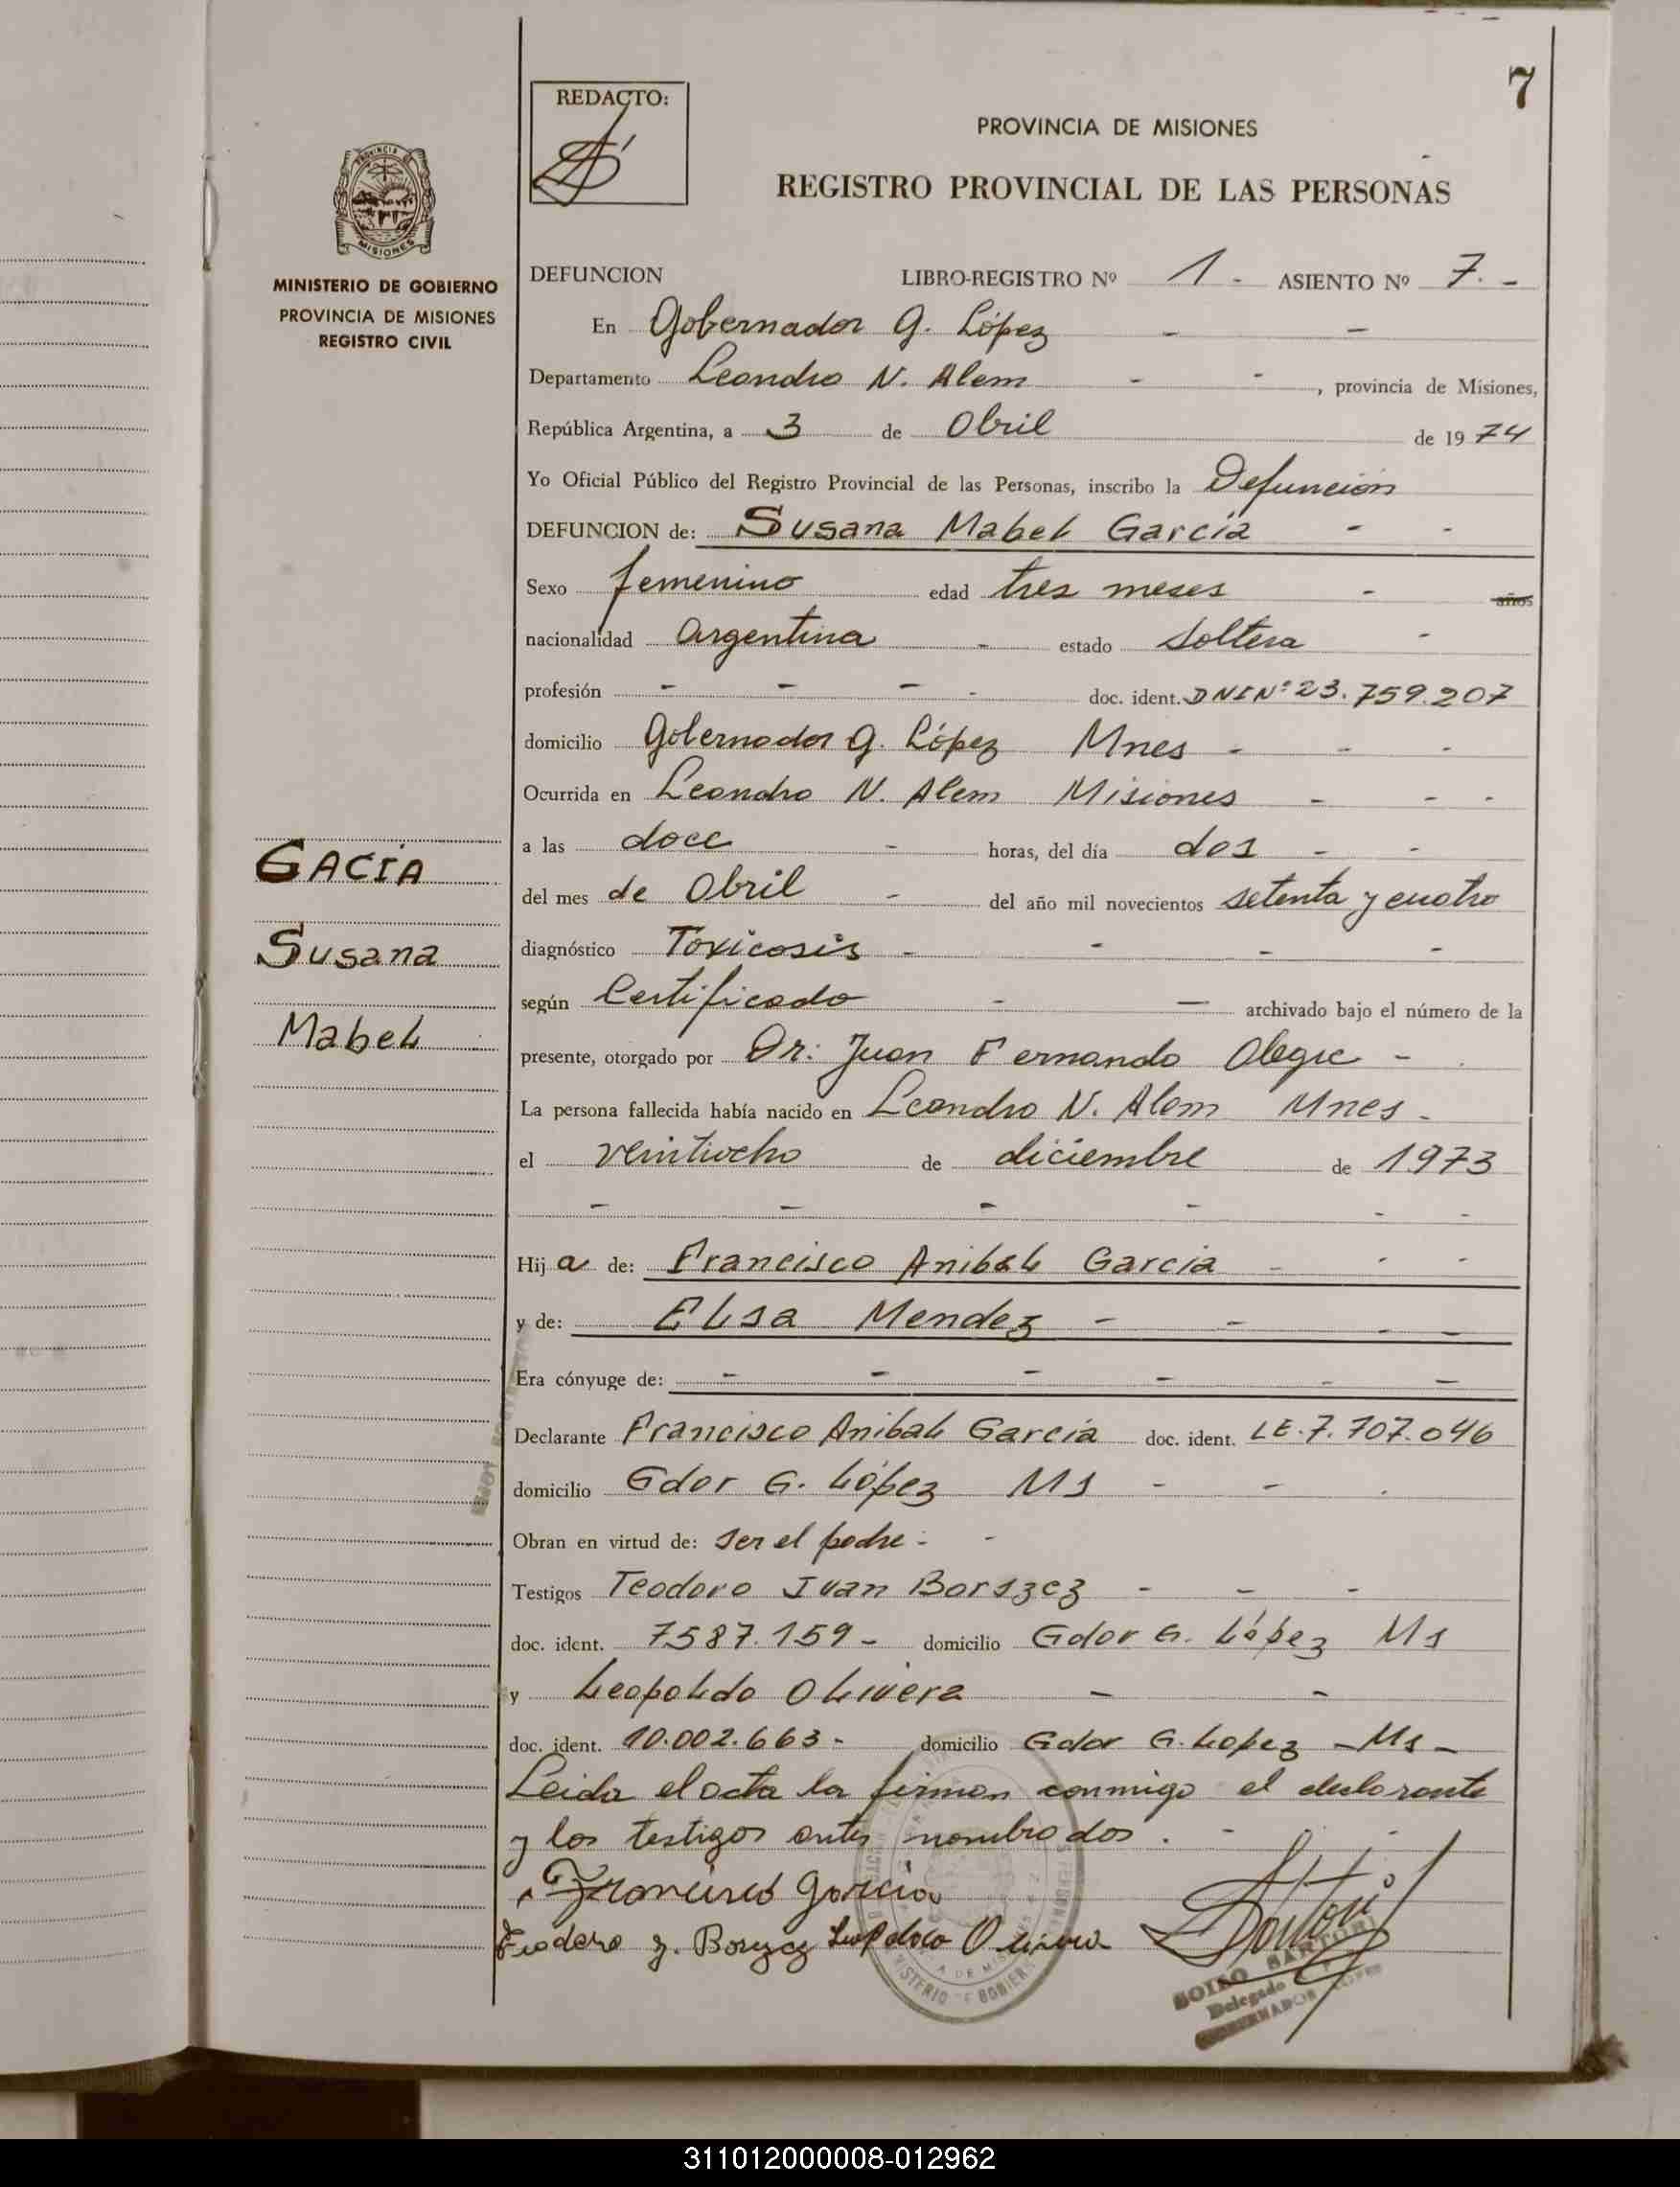 7
REDACTO:
PROVINCIA DE MISIONES
REGISTRO PROVINCIAL DE LAS PERSONAS
PROVINCIA DE
MISIONES
MINISTERIO DE GOBIERNO
PROVINCIA DE MISIONES
REGISTRO CIVIL
GACIA
Susana
Mabel
DEFUNCION LIBRO-REGISTRO Nº 1 - ASIENTO Nº 7. -
En Gobernador G. López - -
Departamento Leandro N. Alem - - , provincia de Misiones,
República Argentina, a 3 de Abril de 1974
Yo Oficial Público del Registro Provincial de las Personas, inscribo la Defunción
DEFUNCION de: Susana Mabel García - -
Sexo femenino edad tres meses - años
nacionalidad Argentina - estado Soltera -
profesión - - - - doc. ident. DNI Nº 23.759.207
domicilio Gobernador G. López Mnes - - -
Ocurrida en Leandro N. Alem Misiones - - -
a las doce - horas, del día dos - -
del mes de Abril - del año mil novecientos setenta y cuatro
diagnóstico Toxicosis - - - -
según Certificado - - archivado bajo el número de la
presente, otorgado por Dr: Juan Fernando -
La persona fallecida había nacido en Leandro N. Alem Mnes -
el veintiocho de diciembre de 1973
- - - - - -
Hija de: Francisco Anibal Garcia - - -
y de: Elsa Mendez - - - -
Era cónyuge de: - - - - - -
Declarante Francisco Anibal García doc. ident. LE. 7.707.046
domicilio Gdor G. López Ms - - .
Obran en virtud de: ser el padre - -
Testigos Teodoro Ivan Borszcz - - -
doc. ident. 7587.159 - domicilio Gdor G. López Ms
y Leopoldo Olivera - -
doc. ident. 10.002.663 - domicilio Gdor G. Lopez - Ms -
Leida el acta la firman conmigo el declarante
y los testigos antes nombrados. - -
Francisco Garcia
Teodoro y. Borszcz Leopoldo Olivera
SARTORI
Delegado
GOBERNADOR LOPEZ
311012000008-012962